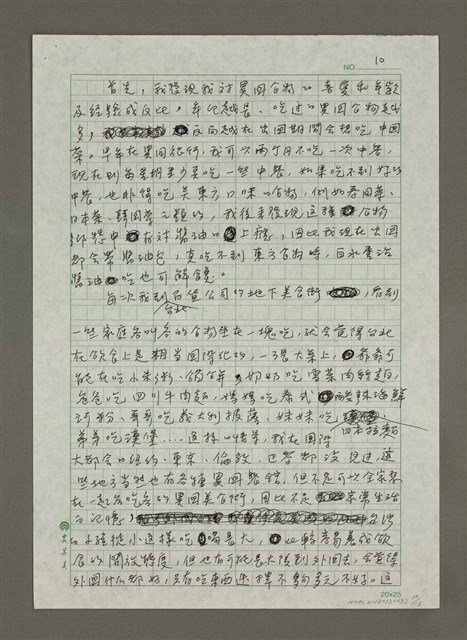 NO. 10
首先，我發現我對異國食物的喜愛和年歲
及經驗成反比，年紀越長、吃過的異國食物越
多，反而越在出國期間會想吃中國
菜。早年在異國旅行，我可以兩個月不吃一次中餐，
現在則每星期至少要吃一些中餐，如果吃不到好的
中餐，也非得吃吴東方口味的食物，例如泰國菜、
日本菜、韓國菜之類的，我後來發現這種食物
對醬油的上癮，因此我現在出國
都會帶醬油包，真吃不到東方食物時，白水煮沾
醬油吃也可解饞。
每次我到台北百貨公司的地下美食街，看到
一些家庭各叫各的食物坐在一塊吃，就會覺得台北
在飲食上是相當國際化的，一張大桌上，爺爺可
能在吃小米粥、鍋餅，奶奶吃雪菜肉絲麵，
爸爸吃四川牛肉麵，媽媽吃泰式酸辣海鮮
河粉、哥哥吃義大利披薩、妹妹吃日本拉麵
弟弟吃漢堡……這樣的情景，我在國際
大都會的紐約、東京、倫敦、巴黎都沒見過，這
些地方當然也有各種異國餐館，但不是可以全家聚
在一起各吃各的異國美食街，因此不是家常生活
的記憶，台北
的小孩從小這樣吃喝長大，比較容易養成飲
食的開放態度，但也有可能長大後到外國去，會覺得
外國什麼都好，只有吃東西選擇不夠多元不好。這
20x25